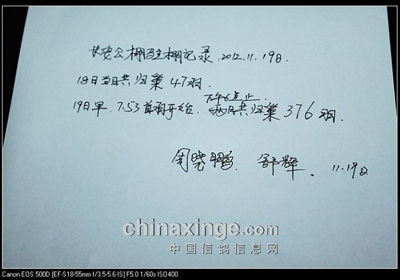 长安公棚驻棚记录 2012.11.19日
18日当日共归巢47羽.
下午6点止
19日早7:53首羽开始 两日共归巢376羽
周晓鹏 邹辉. 11.19日
chinaxinge.com
中国信鸽信息网
Canon EOS 500D [EF-S18-55mm f/3.5-5.6 IS] F5.0 1/60s ISO400